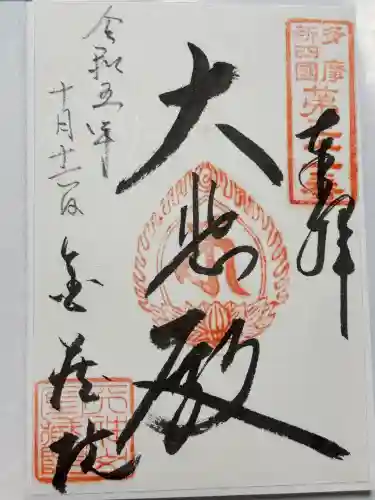 奉拝
大悲殿
令和五年
十月十一日
金蔵院
多摩
新四國